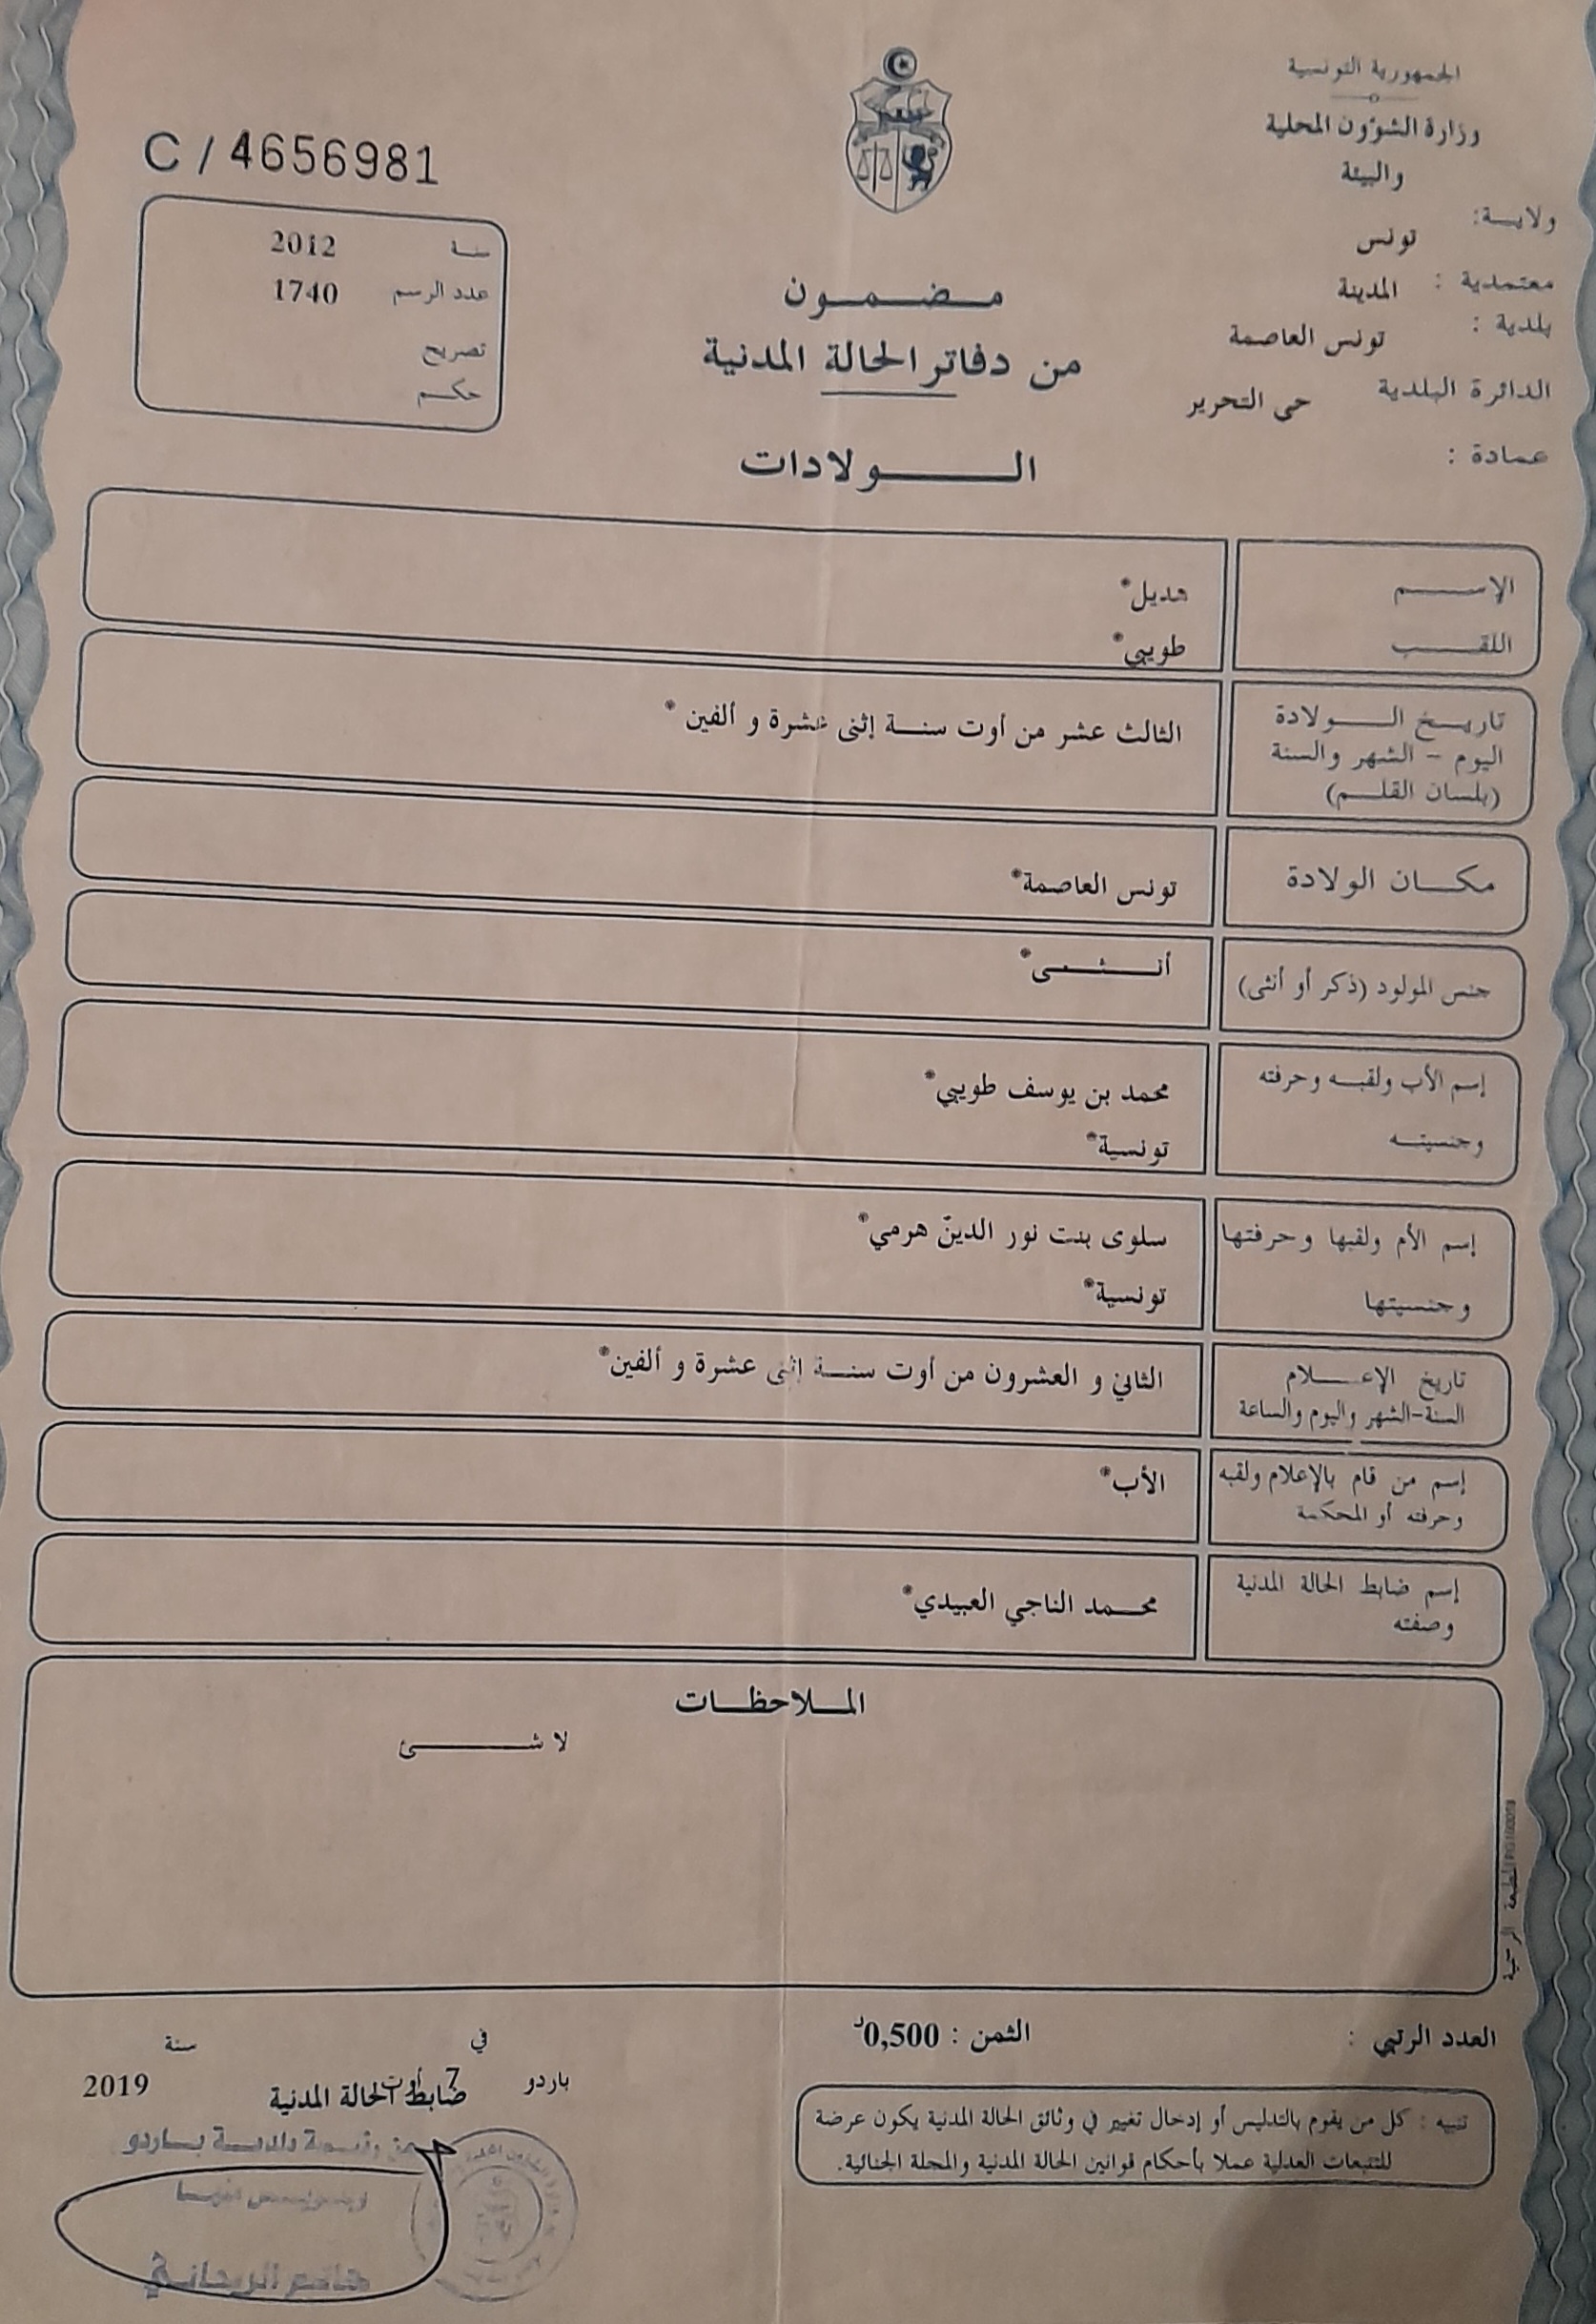 الجمهورية التونسية
وزارة الشؤون المحلية
والبيئة
ولايـــة:
تونس
معتمدية :
المدينة
بلدية :
تونس العاصمة
الدائرة البلدية
حى التحرير
عمادة :
C / 4656981
سنـة 2012
عدد الرسم 1740
تصريح
حكـم
مـضـمـون
من دفاتر الحالة المدنية
الـــولادات
الإســـم
هديل*
اللقـــب
طويبي*
تاريـخ الـــولادة
اليوم – الشهر والسنة
(بلسان القلـم)
الثالث عشر من أوت سنـة إثنى عشرة و ألفين *
مكـــان الولادة
تونس العاصمة*
جنس المولود (ذكر أو أنثى)
أنـــثـــى*
إسم الأب ولقبـه وحرفته
وجنسيتـه
محمد بن يوسف طويبي*
تونسية*
إسم الأم ولقبها وحرفتها
وجنسيتها
سلوى بنت نور الدينّ هرمي*
تونسية*
تاريخ الإعـــلام
السنة-الشهر واليوم والساعة
الثاني و العشرون من أوت سنـة إثنى عشرة و ألفين*
إسم من قام بالإعلام ولقبه
وحرفته أو المحكمة
الأب*
إسم ضابط الحالة المدنية
وصفته
محـمد الناجي العبيدي*
المـلاحظـات
لا شـــئ
المطبعة الرسمية
العدد الرتبي :
الثمن : 0,500د
تنبيه : كل من يقوم بالتدليس أو إدخال تغيير في وثائق الحالة المدنية يكون عرضة
للتتبعات العدلية عملا بأحكام قوانين الحالة المدنية والمجلة الجنائية.
في
سنة
باردو
7 أوت
2019
ضابط الحالة المدنية
بلدية بـاردو